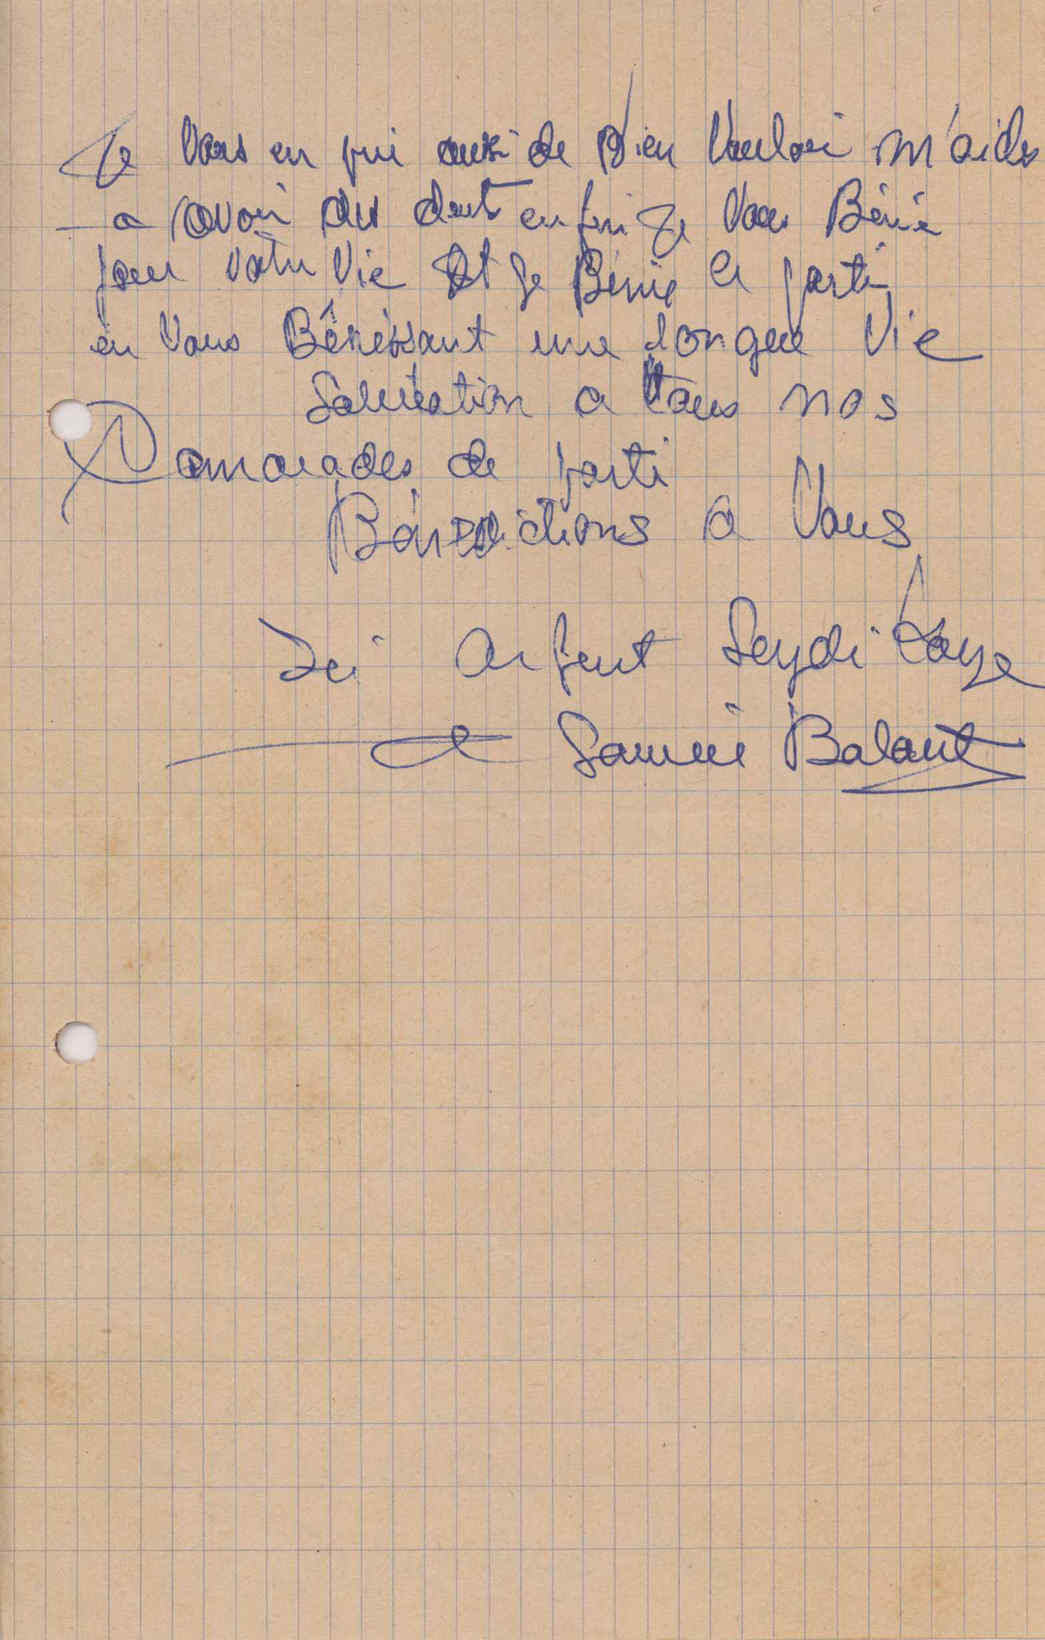 Je Vous en prie aussi de Bien Vouloir m'aider
a avoir des dents enfin Je Vous Bénie
pour votre Vie Et Je Bénie le parti
en Vous Bénissant une longue Vie
Salutation a tous nos
Camarades de parti
Bénédictions a Vous
Seydi
Samui Balant